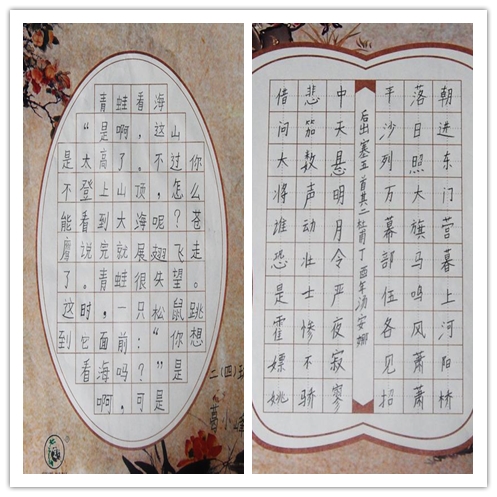 青蛙看海
“是啊，这山
是太高了，不过你
不登上山顶，怎么
能看到大海呢？苍
鹰说完就展翅飞走
了。青蛙很失望。
这时，一只松鼠跳
到它面前：“你想
看海吗？”是
啊，可是
二（四）班
葛小峰
朝进东门营暮上河阳桥
落日照大旗马鸣风萧萧
平沙列万幕部伍各见招
后出塞五首其二杜甫丁酉年汤安娜
中天悬明月令严夜寂寥
悲笳数声动壮士惨不骄
借问大将谁恐是霍嫖姚